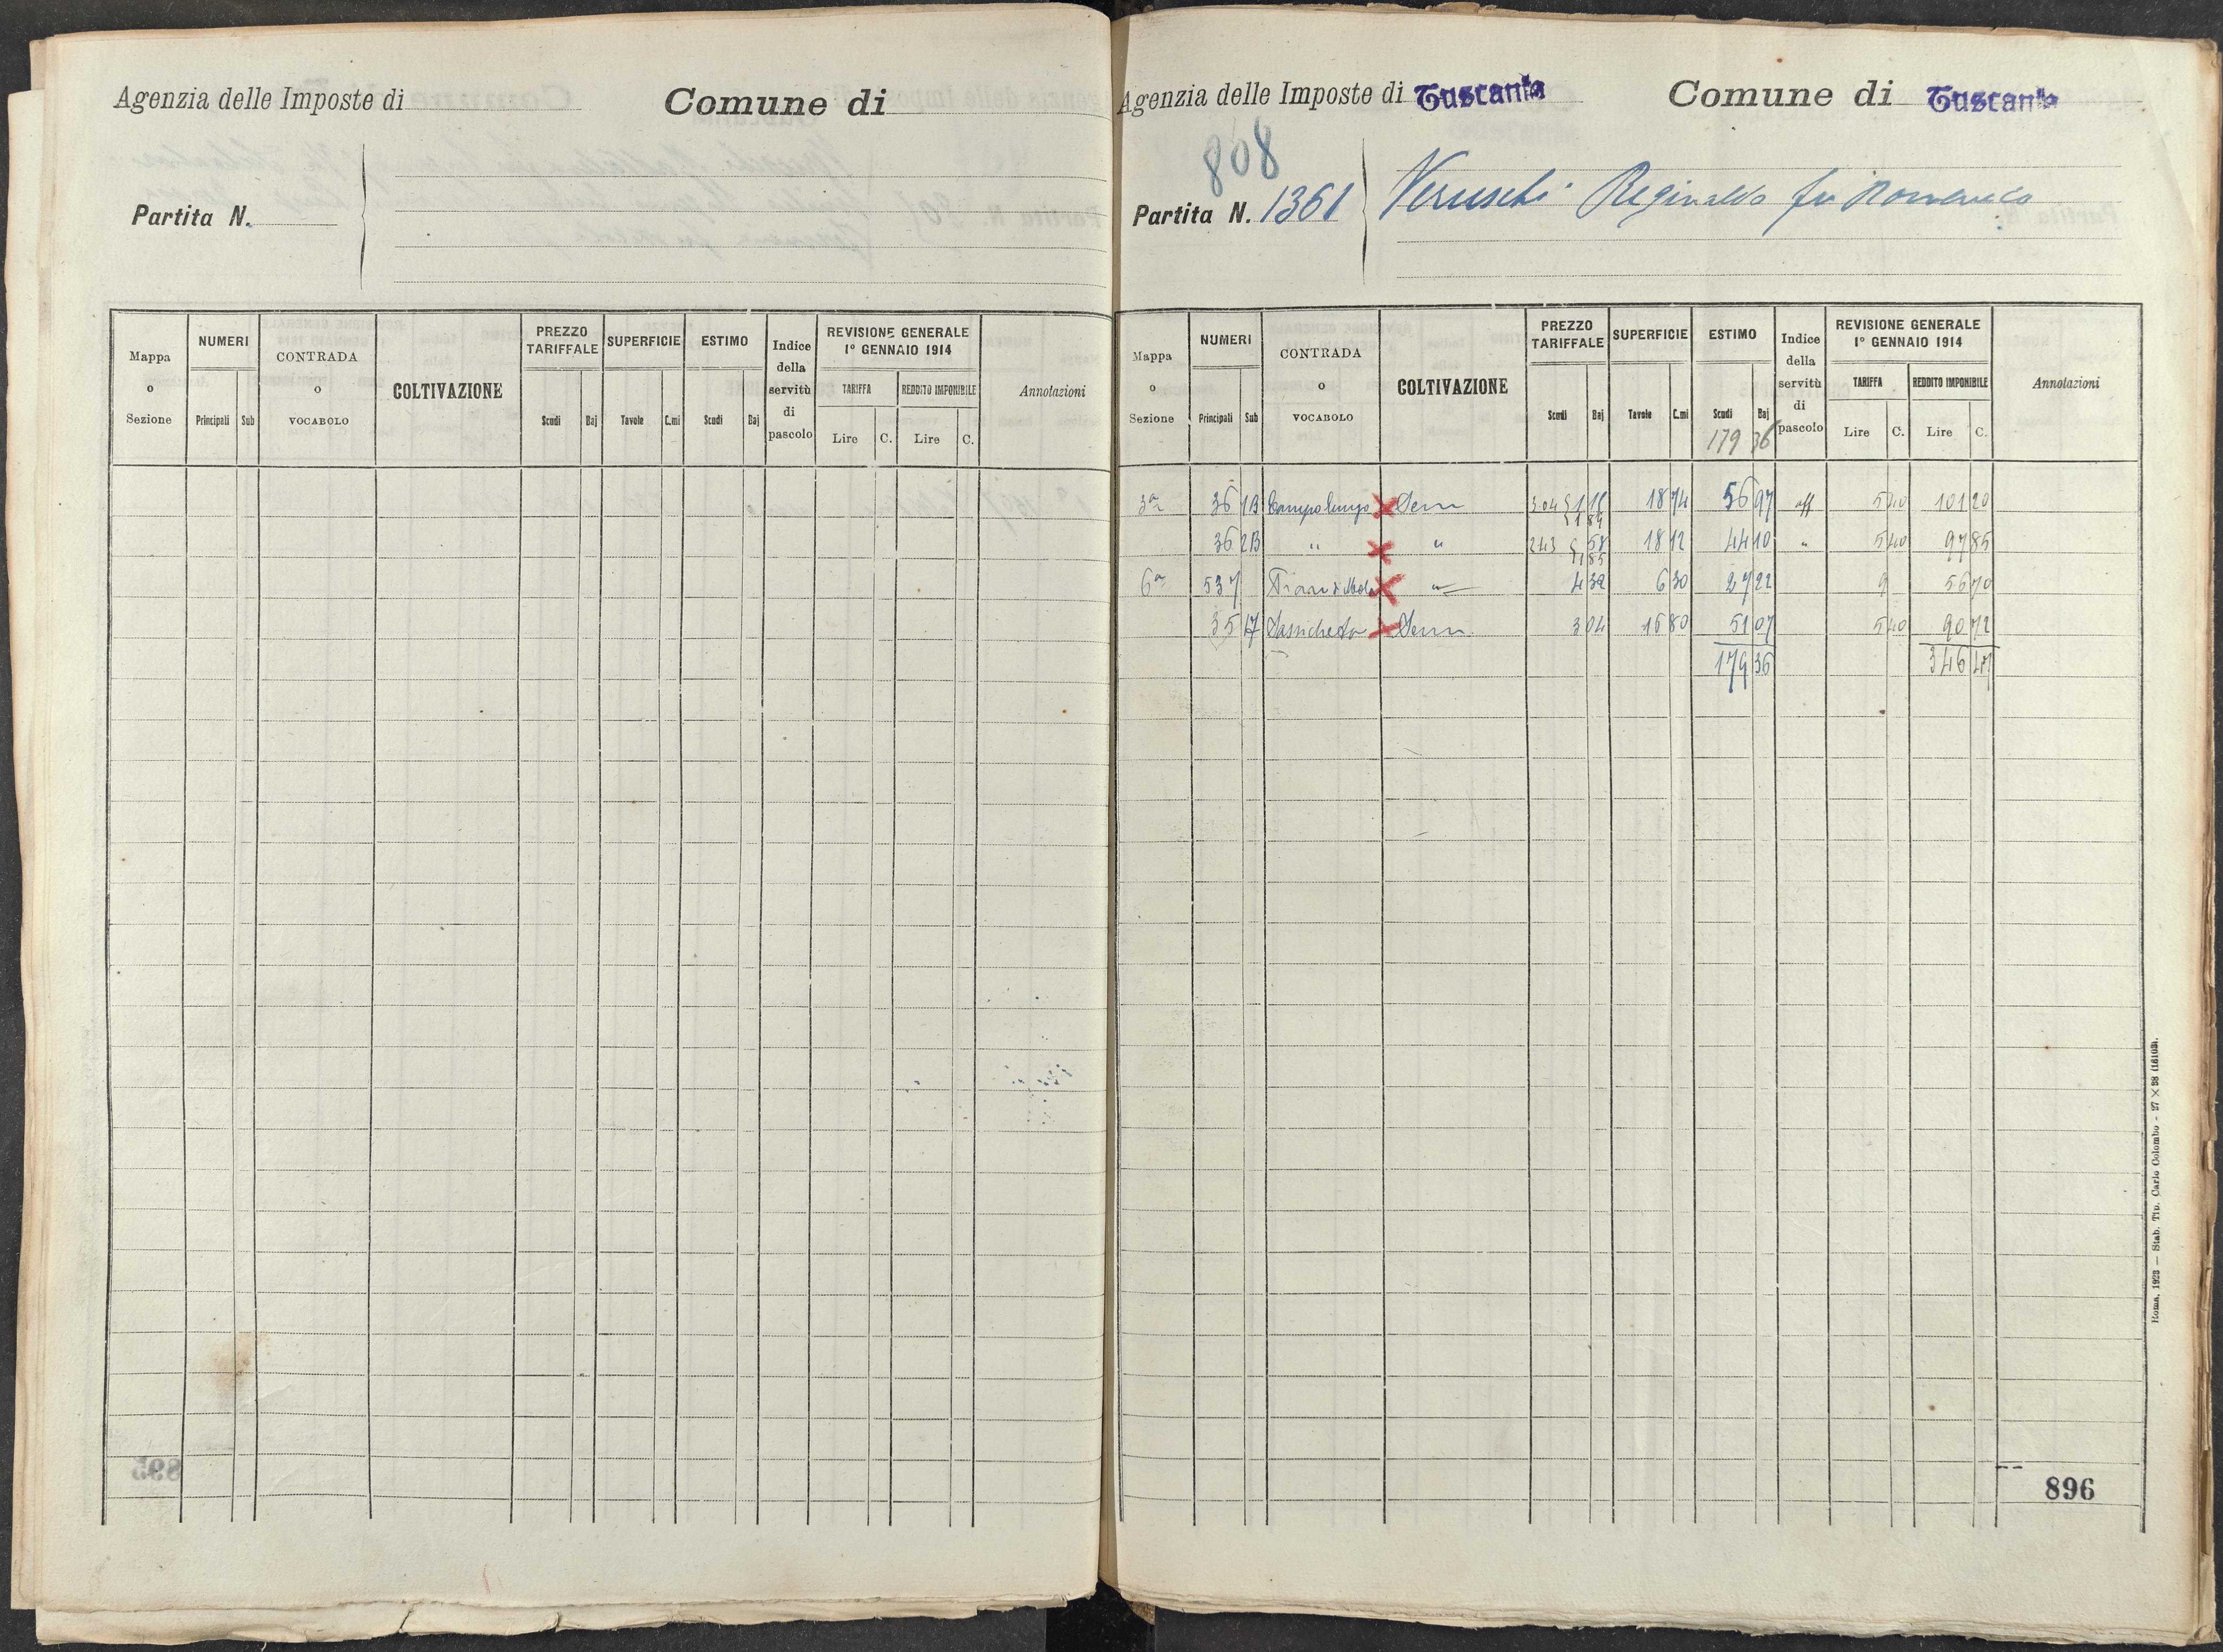 Agenzia delle Imposte di
Comune di
Partita N.
Mappa o Sezione
NUMERI
Principali Sub
CONTRADA o VOCABOLO
COLTIVAZIONE
PREZZO TARIFFALE
Scudi Baj
SUPERFICIE
Tavole C.mi
ESTIMO
Scudi Baj
Indice della servitù di pascolo
REVISIONE GENERALE
1° GENNAIO 1914
TARIFFA
Lire C.
REDDITO IMPONIBILE
Lire C.
Annotazioni
Agenzia delle Imposte di Tuscania
Comune di Tuscania
808
Partita N. 1361
Veruschi Reginaldo fu Domenico
Mappa o Sezione
NUMERI
Principali Sub
CONTRADA o VOCABOLO
COLTIVAZIONE
PREZZO TARIFFALE
Scudi Baj
SUPERFICIE
Tavole C.mi
ESTIMO
Scudi Baj
179 36
Indice della servitù di pascolo
REVISIONE GENERALE
1° GENNAIO 1914
TARIFFA
Lire C.
REDDITO IMPONIBILE
Lire C.
Annotazioni
3a 36 1B Campolungo Sem 3 04 18 74 56 97 aff 5 40 101 20
36 2B " " 2 43 18 12 44 10 " 5 40 97 85
6a 537 " 4 32 6 30 27 22 9 56 70
35 Sassicheto Sem 3 04 16 80 51 07 5 40 90 72
179 36 346 47
896
Roma, 1923 — Stab. Tip. Carlo Colombo - 27 × 38 (16103).